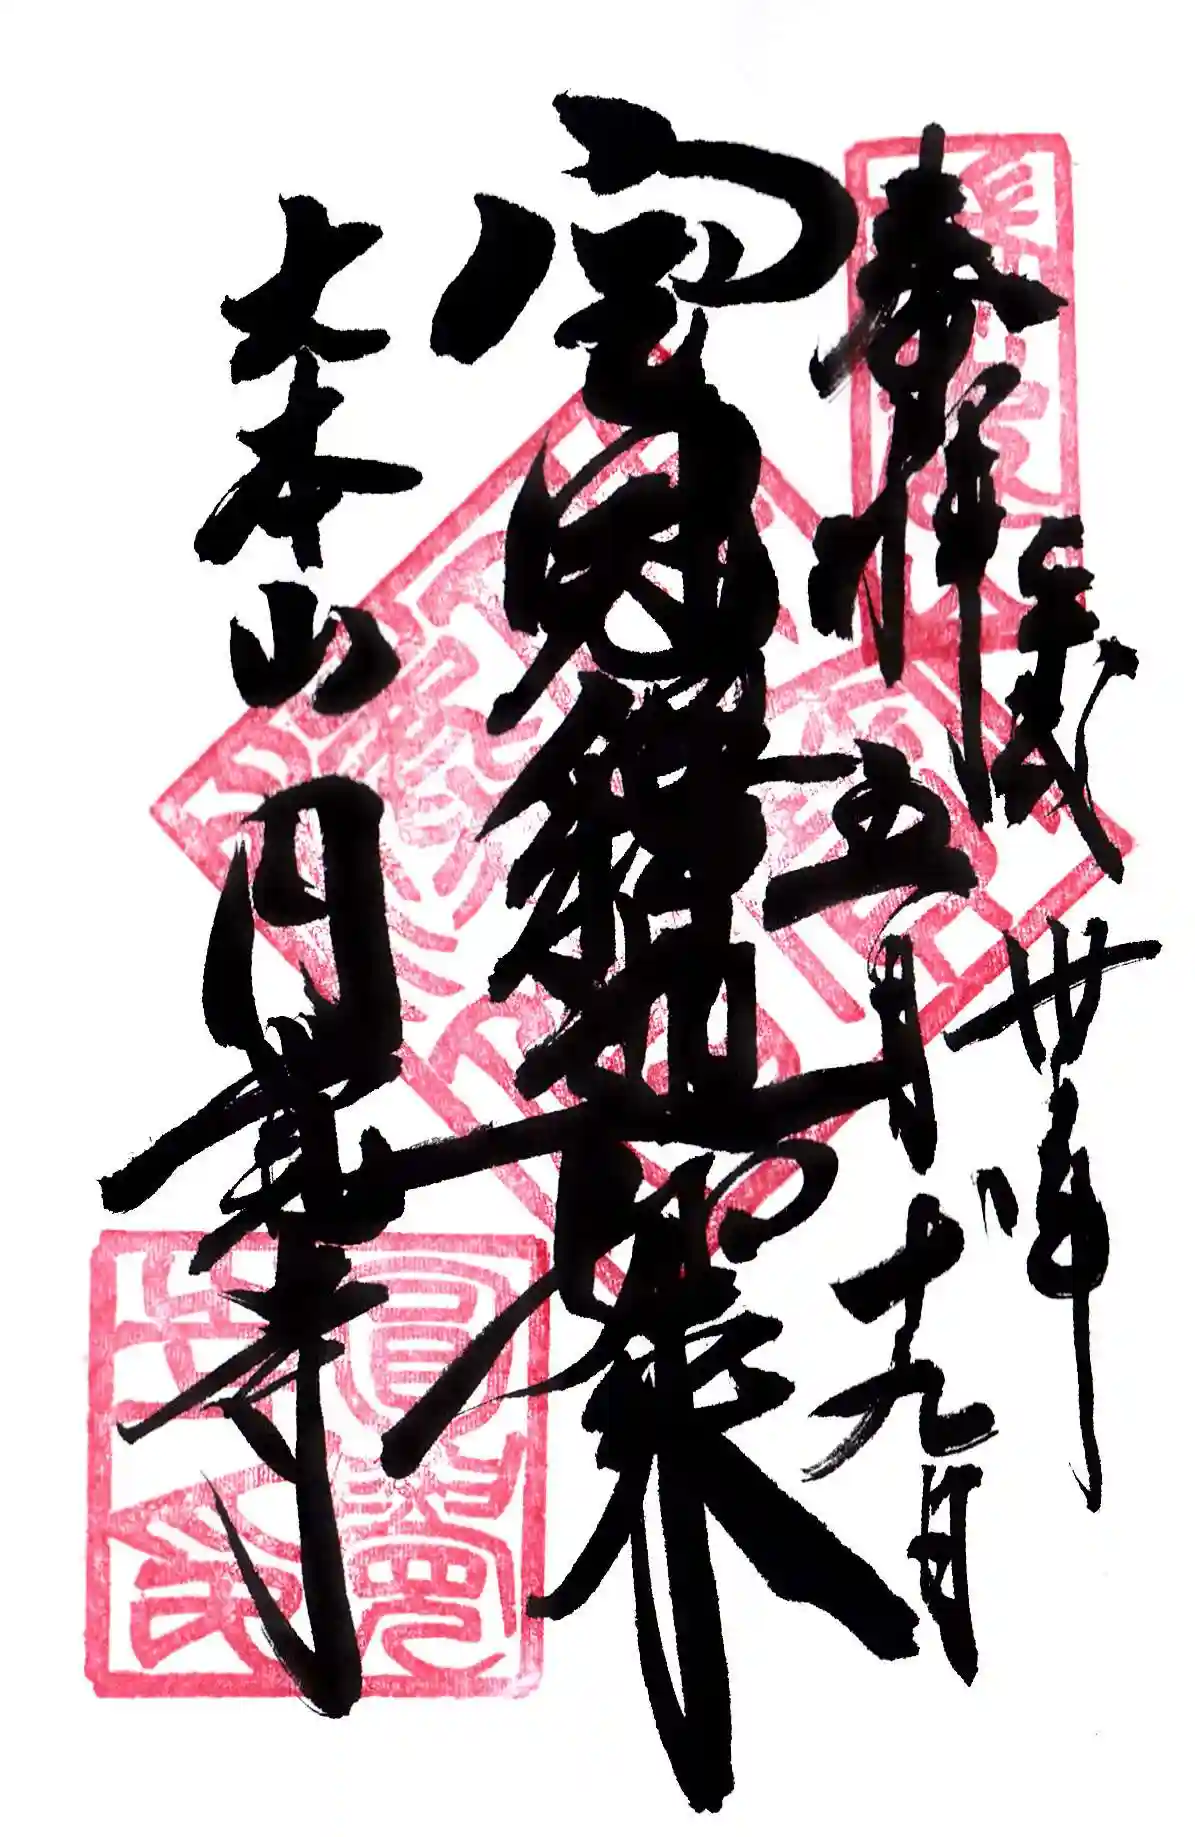 奉拝
平成廿八年
五月十九日
宝冠釈迦如来
大本山円覚寺